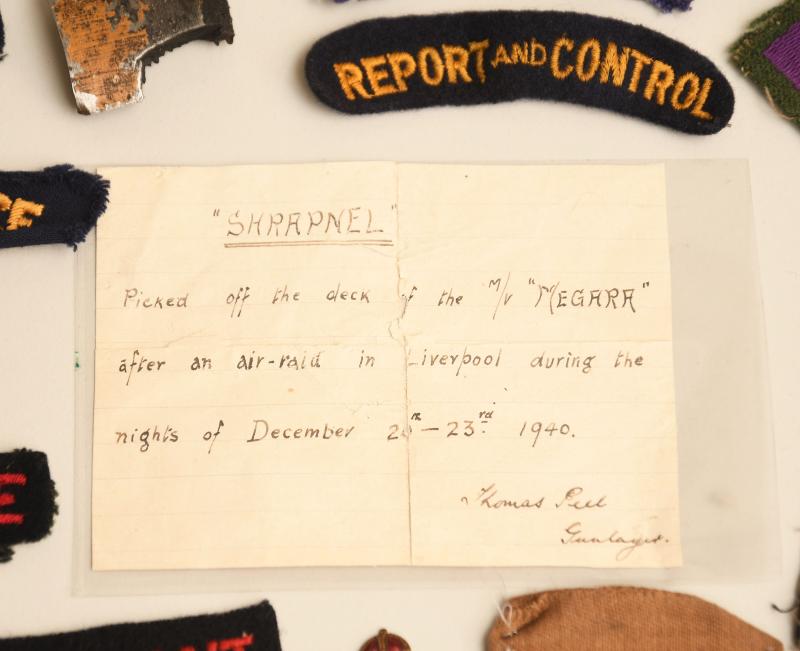 REPORT AND CONTROL
"SHRAPNEL"
Picked off the deck of the M/V "MEGARA"
after an air-raid in Liverpool during the
nights of December 20th – 23rd 1940.
Thomas Peel
Gunlayer.
E